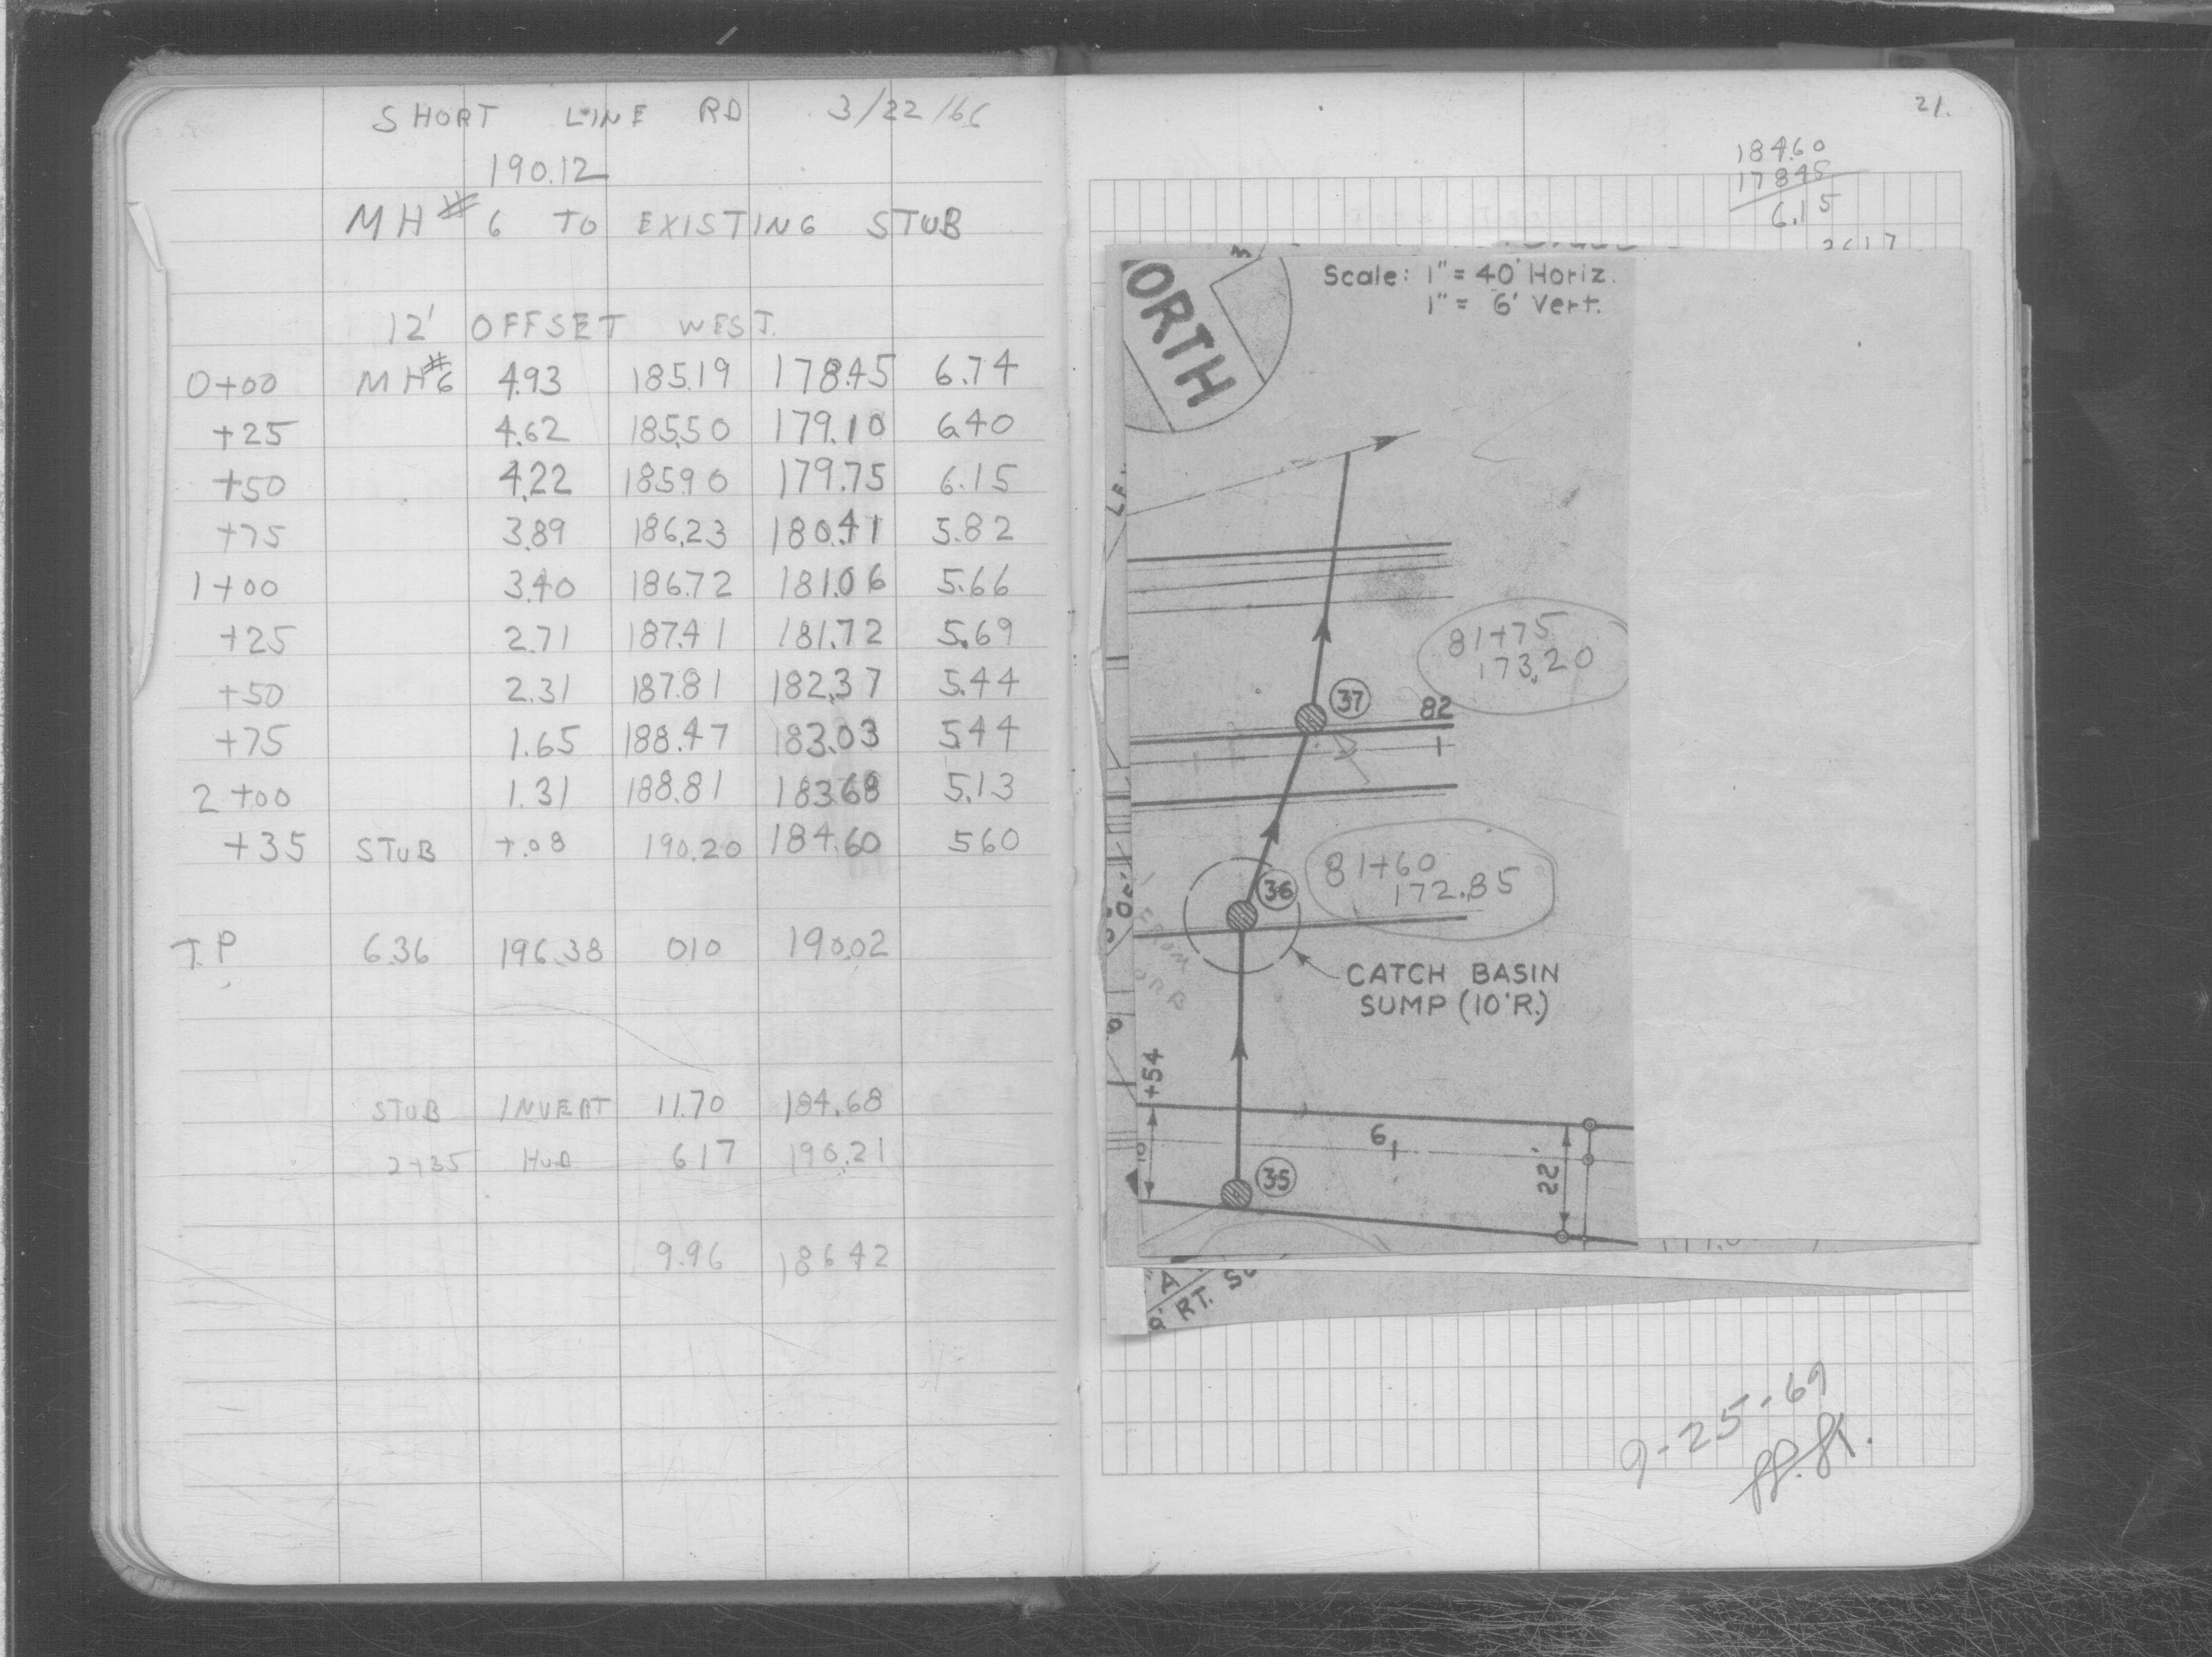 SHORT LINE RD 3/22/66
190.12
MH# 6 TO EXISTING STUB
12' OFFSET WEST.
0+00 MH#6 4.93 185.19 178.45 6.74
+25 4.62 185.50 179.10 6.40
+50 4.22 185.90 179.75 6.15
+75 3.89 186.23 180.41 5.82
1+00 3.40 186.72 181.06 5.66
+25 2.71 187.41 181.72 5.69
+50 2.31 187.81 182.37 5.44
+75 1.65 188.47 183.03 5.44
2+00 1.31 188.81 183.68 5.13
+35 STUB +.08 190.20 184.60 560
T.P 6.36 196.38 010 190.02
STUB INVERT 11.70 184.68
2+35 HUB 617 190.21
9.96 186.42
21.
184.60
178.45
6.15
2617
ORTH
Scale: 1" = 40' Horiz.
1" = 6' Vert.
81+75
173.20
37
82
81+60
172.85
36
FROM
CATCH BASIN
SUMP (10'R.)
+54
6
22'
35
"A
RT.
9-25-69